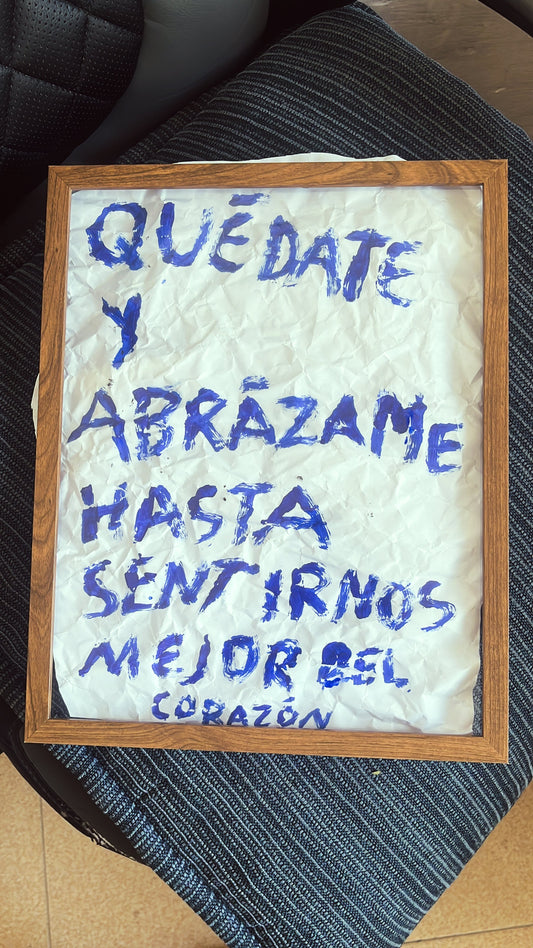 QUÉDATE
Y
ABRÁZAME
HASTA
SENTIRNOS
MEJOR DEL
CORAZÓN